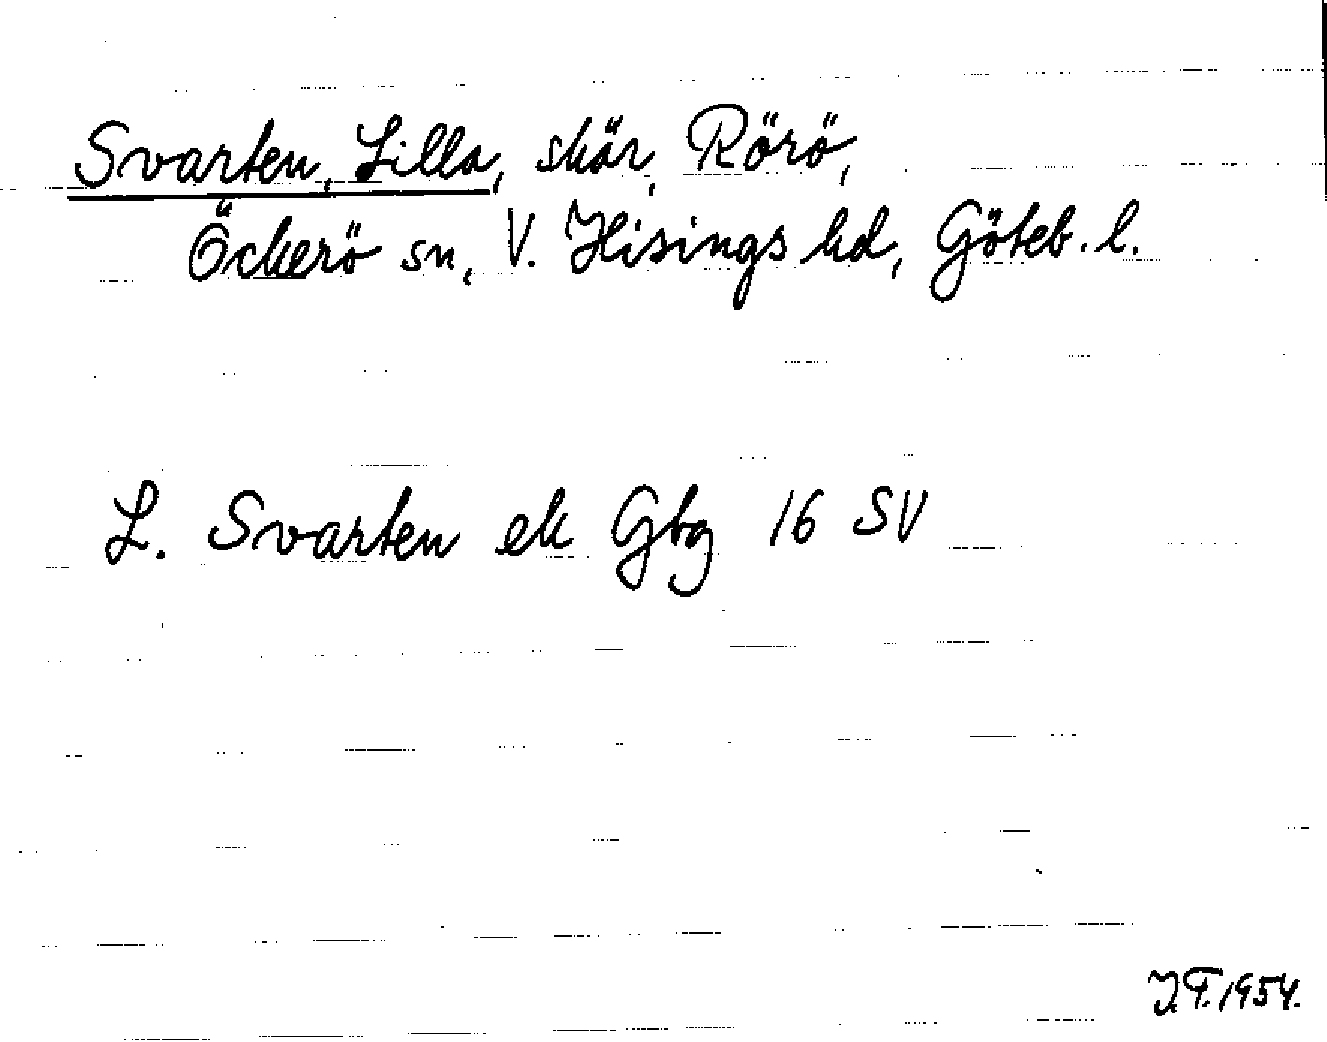 Svarten, Lilla, skär, Rörö,
Öckerö sn, V. Hisings hd, Göteb. l.
L. Svarten ek Gbg 16 SV
I.F. 1954.